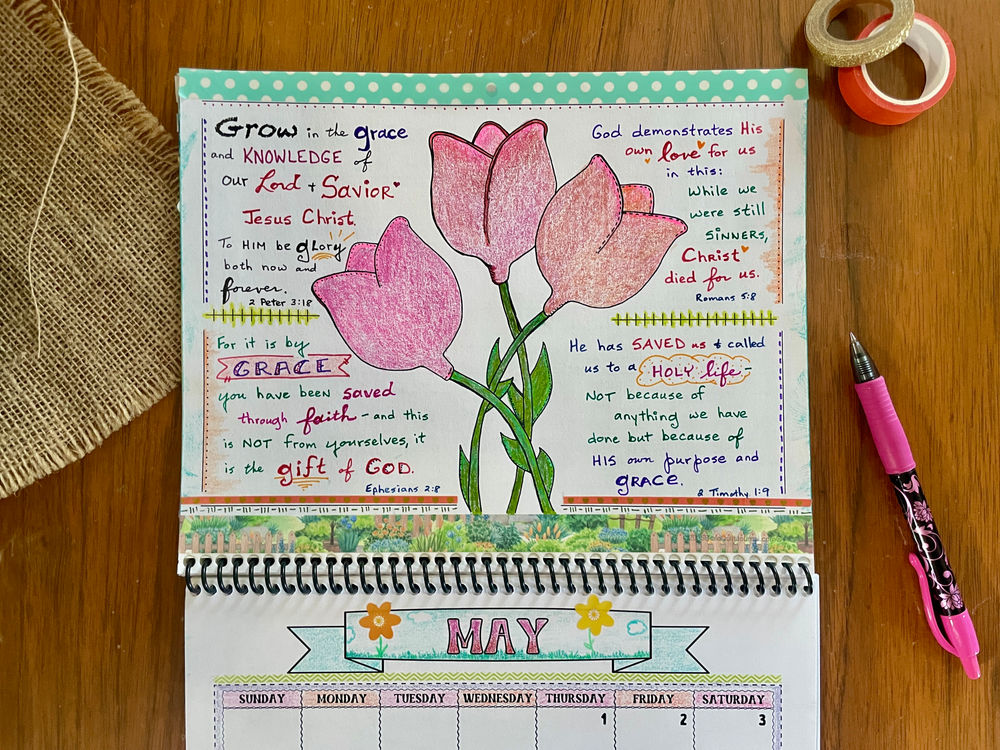 Grow in the grace
and KNOWLEDGE of
our Lord + Savior
Jesus Christ.
To HIM be glory
both now and
forever.
2 Peter 3:18
God demonstrates His
own love for us
in this:
While we
were still
SINNERS,
Christ
died for us.
Romans 5:8
For it is by
GRACE
you have been saved
through faith - and this
is NOT from yourselves, it
is the gift of GOD.
Ephesians 2:8
He has SAVED us & called
us to a HOLY life -
NOT because of
anything we have
done but because of
HIS own purpose and
GRACE.
2 Timothy 1:9
MAY
SUNDAY MONDAY TUESDAY WEDNESDAY THURSDAY FRIDAY SATURDAY
1 2 3